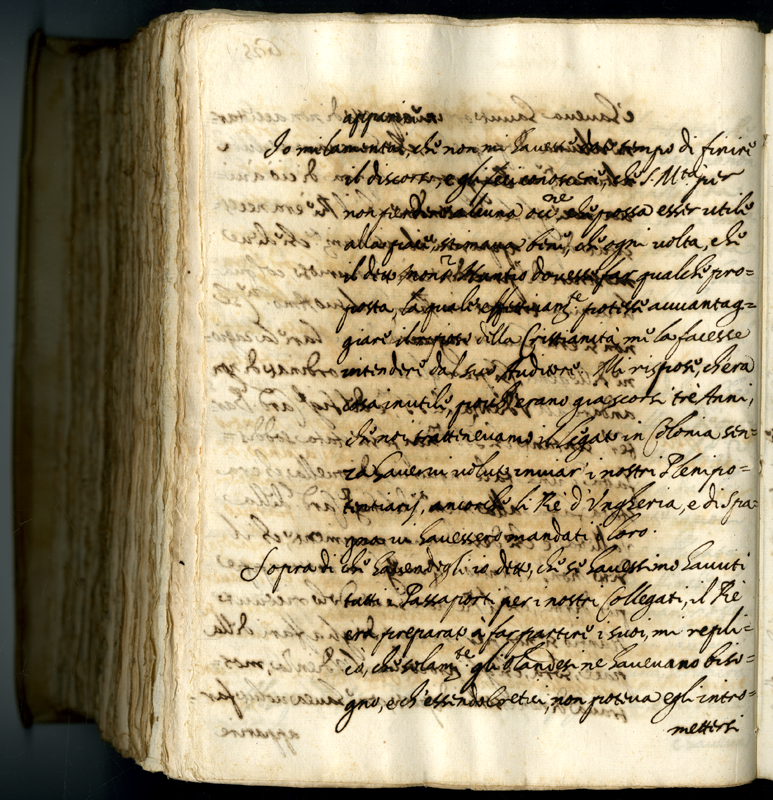 apparire.
Io mi lamentai, che non mi havesse dato tempo di finire
il discorso, e gli feci conoscere, che S. M.tà per
non perdere alcuna occ.ne, che possa esser utile
alla pace, stimava bene, che ogni volta, che
il detto Mons.r dovesse far qualche pro=
posta, la quale effettivam.te potesse avvantag=
giare il riposo della Cristianità, me la facesse
intendere dal suo Auditore. Mi rispose, ch'era
cosa inutile, poich'erano già scorsi trè Anni,
che noi trattenevamo il Legato in Colonia sen=
za havervi voluto inviar' i nostri Plenipo=
tentiarij, ancorche li Rè d'Ungheria, e di Spa=
gna vi havessero mandati i loro.
Sopra di che havendogli io detto, che se havessimo havuti
tutti i Passaporti per i nostri Collegati, il Rè
era preparato à far partire i suoi, mi repli=
cò, che solam.te gli Olandesi ne havevano biso=
gno, e ch'essendo eretici, non poteva egli intro=
mettersi